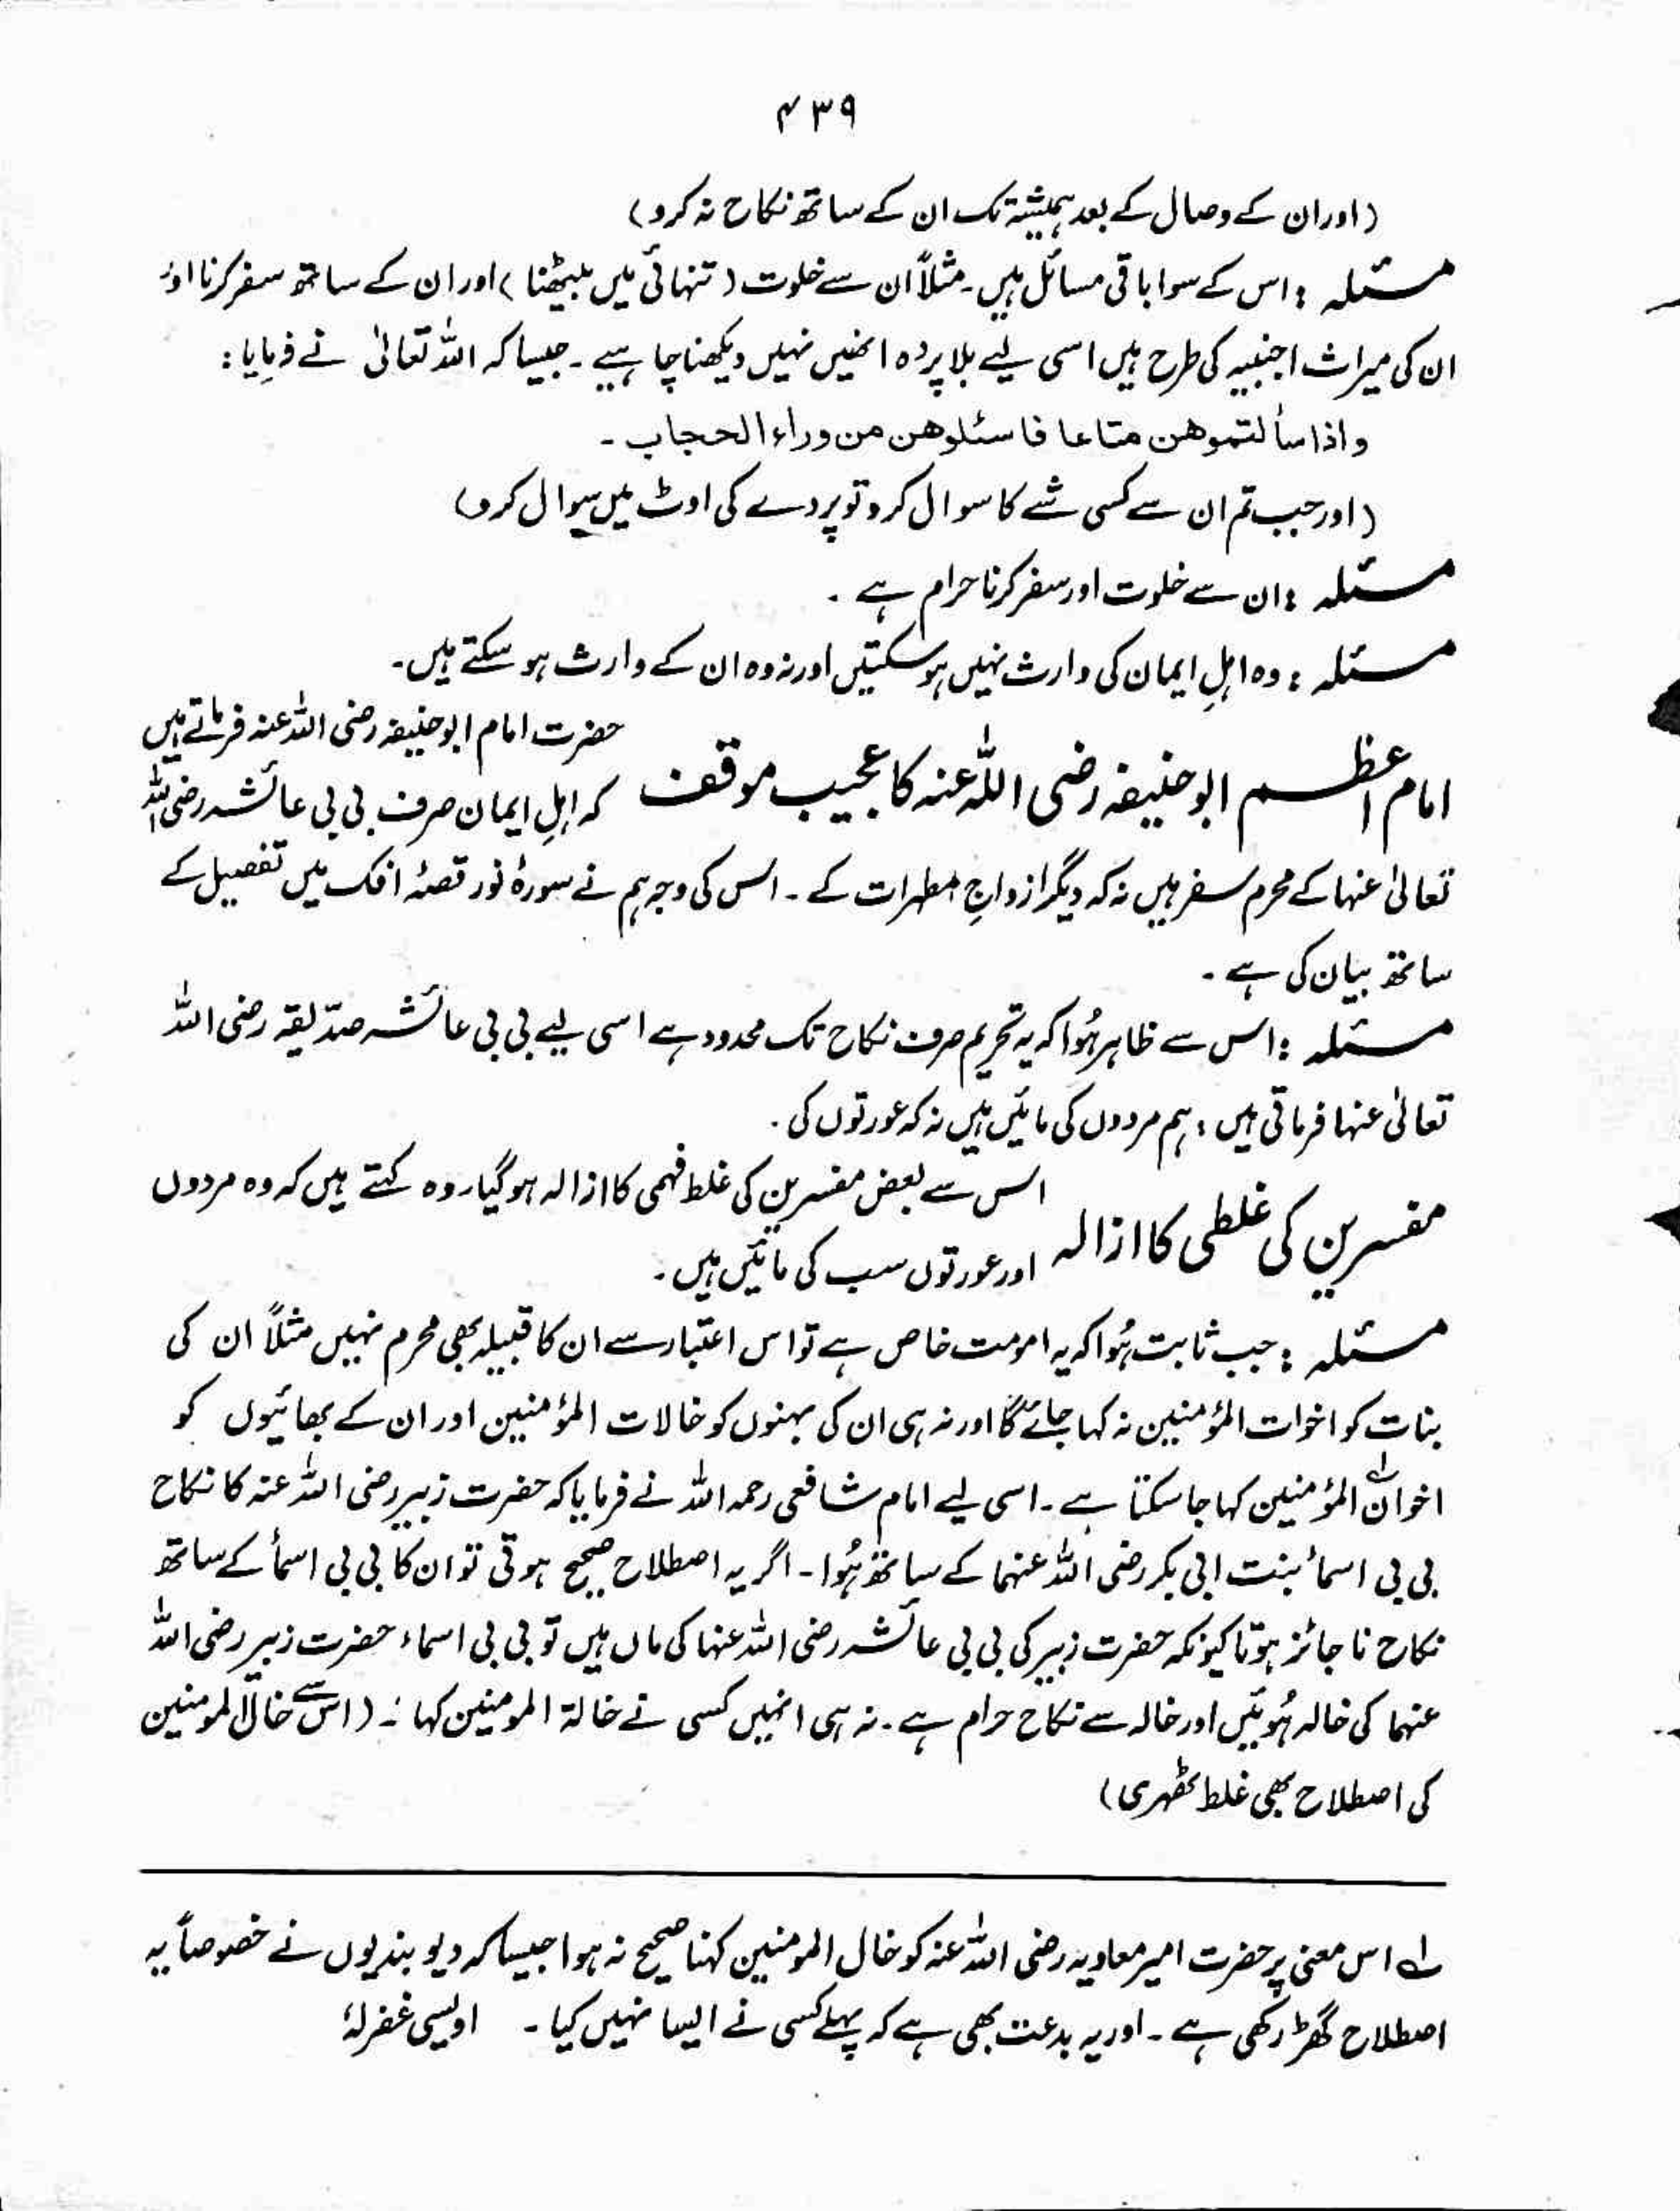 ۴۳۹
(اور ان کے وصال کے بعد ہمیشہ تک ان کے ساتھ نکاح نہ کرو)
مسئلہ : اس کے سوا باقی مسائل میں۔ مثلاً ان سے خلوت (تنہائی میں بیٹھنا) اور ان کے ساتھ سفر کرنا اور
ان کی میراث اجنبیہ کی طرح ہیں اسی لیے بلا پردہ انھیں نہیں دیکھنا چاہیے۔ جیسا کہ اللہ تعالیٰ نے فرمایا :
واذا سألتموهن متاعا فاسئلوهن من وراء الحجاب ۔
(اور جب تم ان سے کسی شے کا سوال کرو تو پردے کی اوٹ میں سوال کرو)
مسئلہ : ان سے خلوت اور سفر کرنا حرام ہے ۔
مسئلہ : وہ اہلِ ایمان کی وارث نہیں ہو سکتیں اور نہ وہ ان کے وارث ہو سکتے ہیں۔
امام اعظم ابو حنیفہ رضی اللہ عنہ کا عجیب موقف حضرت امام ابو حنیفہ رضی اللہ عنہ فرماتے ہیں
کہ اہلِ ایمان صرف بی بی عائشہ رضی اللہ
تعالیٰ عنہا کے محرم سفر ہیں نہ کہ دیگر ازواجِ مطہرات کے ۔ اس کی وجہ ہم نے سورۂ نور قصۂ افک میں تفصیل کے
ساتھ بیان کی ہے ۔
مسئلہ : اس سے ظاہر ہُوا کہ یہ تحریم صرف نکاح تک محدود ہے اسی لیے بی بی عائشہ صدّیقہ رضی اللہ
تعالیٰ عنہا فرماتی ہیں : ہم مردوں کی مائیں ہیں نہ کہ عورتوں کی ۔
مفسرین کی غلطی کا ازالہ اس سے بعض مفسرین کی غلط فہمی کا ازالہ ہو گیا۔ وہ کہتے ہیں کہ وہ مردوں
اور عورتوں سب کی مائیں ہیں ۔
مسئلہ : جب ثابت ہُوا کہ یہ امومت خاص ہے تو اس اعتبار سے ان کا قبیلہ بھی محرم نہیں مثلاً ان کی
بنات کو اخوات المؤمنین نہ کہا جائے گا اور نہ ہی ان کی بہنوں کو خالات المؤمنین اور ان کے بھائیوں کو
اخوان المؤمنین کہا جا سکتا ہے ۔ اسی لیے امام شافعی رحمہ اللہ نے فرمایا کہ حضرت زبیر رضی اللہ عنہ کا نکاح
بی بی اسمأ بنت ابی بکر رضی اللہ عنہما کے ساتھ ہُوا ۔ اگر یہ اصطلاح صحیح ہوتی تو ان کا بی بی اسمأ کے ساتھ
نکاح ناجائز ہوتا کیونکہ حضرت زبیر کی بی بی عائشہ رضی اللہ عنہا کی ماں ہیں تو بی بی اسماء حضرت زبیر رضی اللہ
عنہما کی خالہ ہُوئیں اور خالہ سے نکاح حرام ہے ۔ نہ ہی انہیں کسی نے خالۃ المومنین کہا ؛ (اس سے خال المومنین
کی اصطلاح بھی غلط ٹھہری)
لے اس معنی پر حضرت امیر معاویہ رضی اللہ عنہ کو خال المومنین کہنا صحیح نہ ہوا جیسا کہ دیوبندیوں نے خصوصاً یہ
اصطلاح گھڑ رکھی ہے ۔ اور یہ بدعت بھی ہے کہ پہلے کسی نے ایسا نہیں کیا ۔ اویسی غفرلہٗ